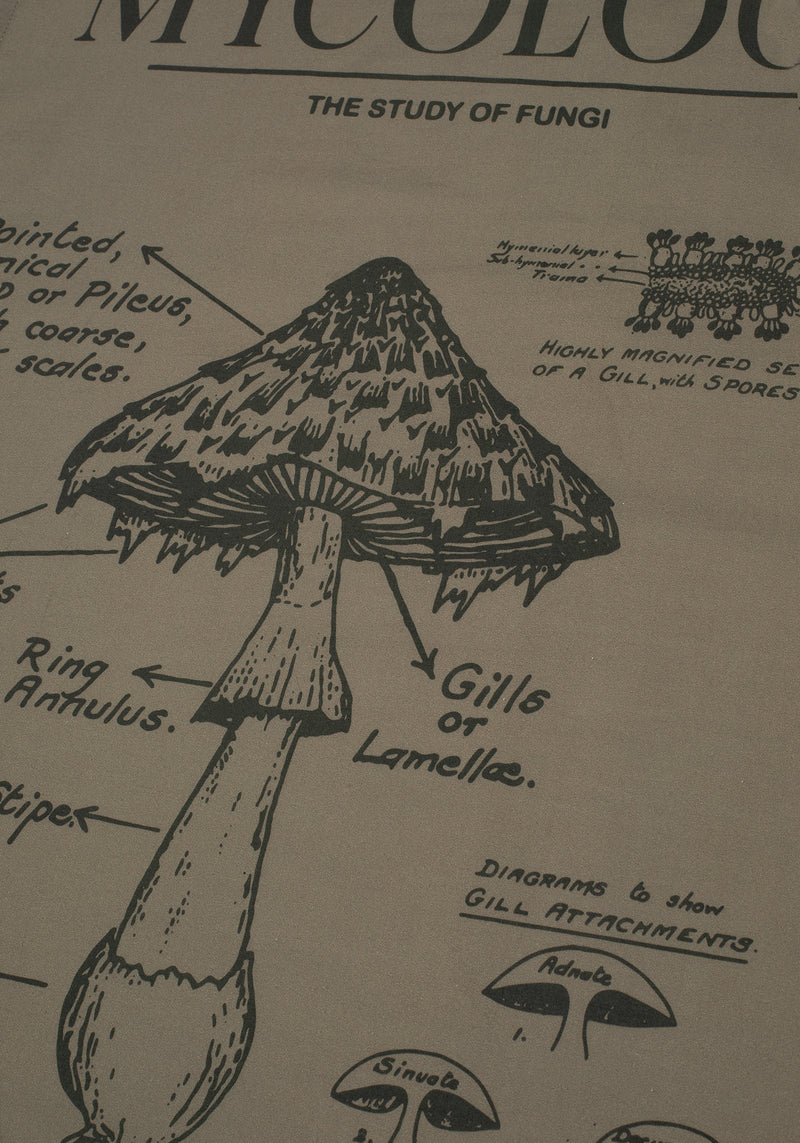 MYCOLOG
THE STUDY OF FUNGI
ointed,
nical
or Pileus,
coarse,
scales.
Hymenial layer
Sub-hymenial
Trama
HIGHLY MAGNIFIED SE
OF A GILL, with SPORES
Ring
Annulus.
Gills
or
Lamellæ.
Stipe.
DIAGRAMS to show
GILL ATTACHMENTS.
Adnate
1.
Sinuate
2.